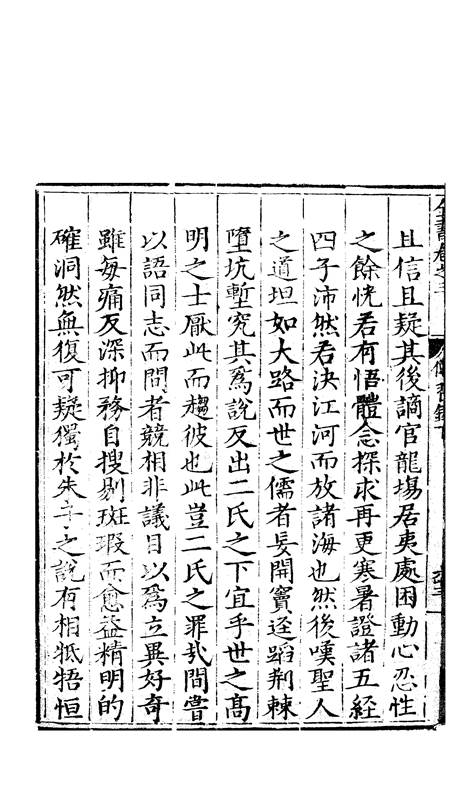 且信且疑其後謫官龍場居夷處困動心忍性
之餘恍若有悟體念探求再更寒暑證諸五經
四子沛然若決江河而放諸海也然後嘆聖人
之道坦如大路而世之儒者妄開竇逕蹈荆棘
墮坑塹究其爲說反出二氏之下宜乎世之高
明之士厭此而趨彼也此豈二氏之罪㢤間嘗
以語同志而聞者競相非議目以爲立異好奇
雖每痛反深抑務自搜剔斑瑕而愈益精明的
確洞然無復可疑獨於朱子之說有相牴牾恒